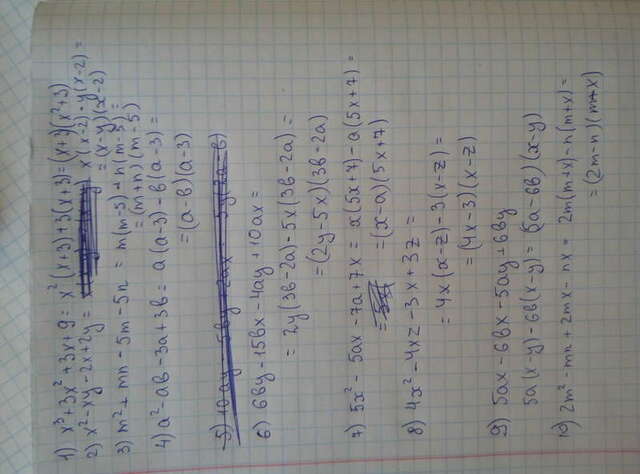 1) x³+3x²+3x+9 = x²(x+3)+3(x+3)=(x+3)(x²+3)
2) x²-xy-2x+2y = x(x-2)-y(x-2)=
=(x-y)(x-2)
3) m²+mn-5m-5n = m(m-5)+n(m-5)=
=(m+n)(m-5)
4) a²-ab-3a+3b= a(a-3)-b(a-3)=
=(a-b)(a-3)
6) 6by-15bx-4ay+10ax=
=2y(3b-2a)-5x(3b-2a)=
=(2y-5x)(3b-2a)
7) 5x²-5ax-7a+7x= x(5x+7)-a(5x+7)=
=(x-a)(5x+7)
8) 4x²-4xz-3x+3z=
=4x(x-z)-3(x-z)=
=(4x-3)(x-z)
9) 5ax-6bx-5ay+6by
5a(x-y)-6b(x-y)=(5a-6b)(x-y)
10) 2m²-mn+2mx-nx= 2m(m+x)-n(m+x)=
=(2m-n)(m+x)